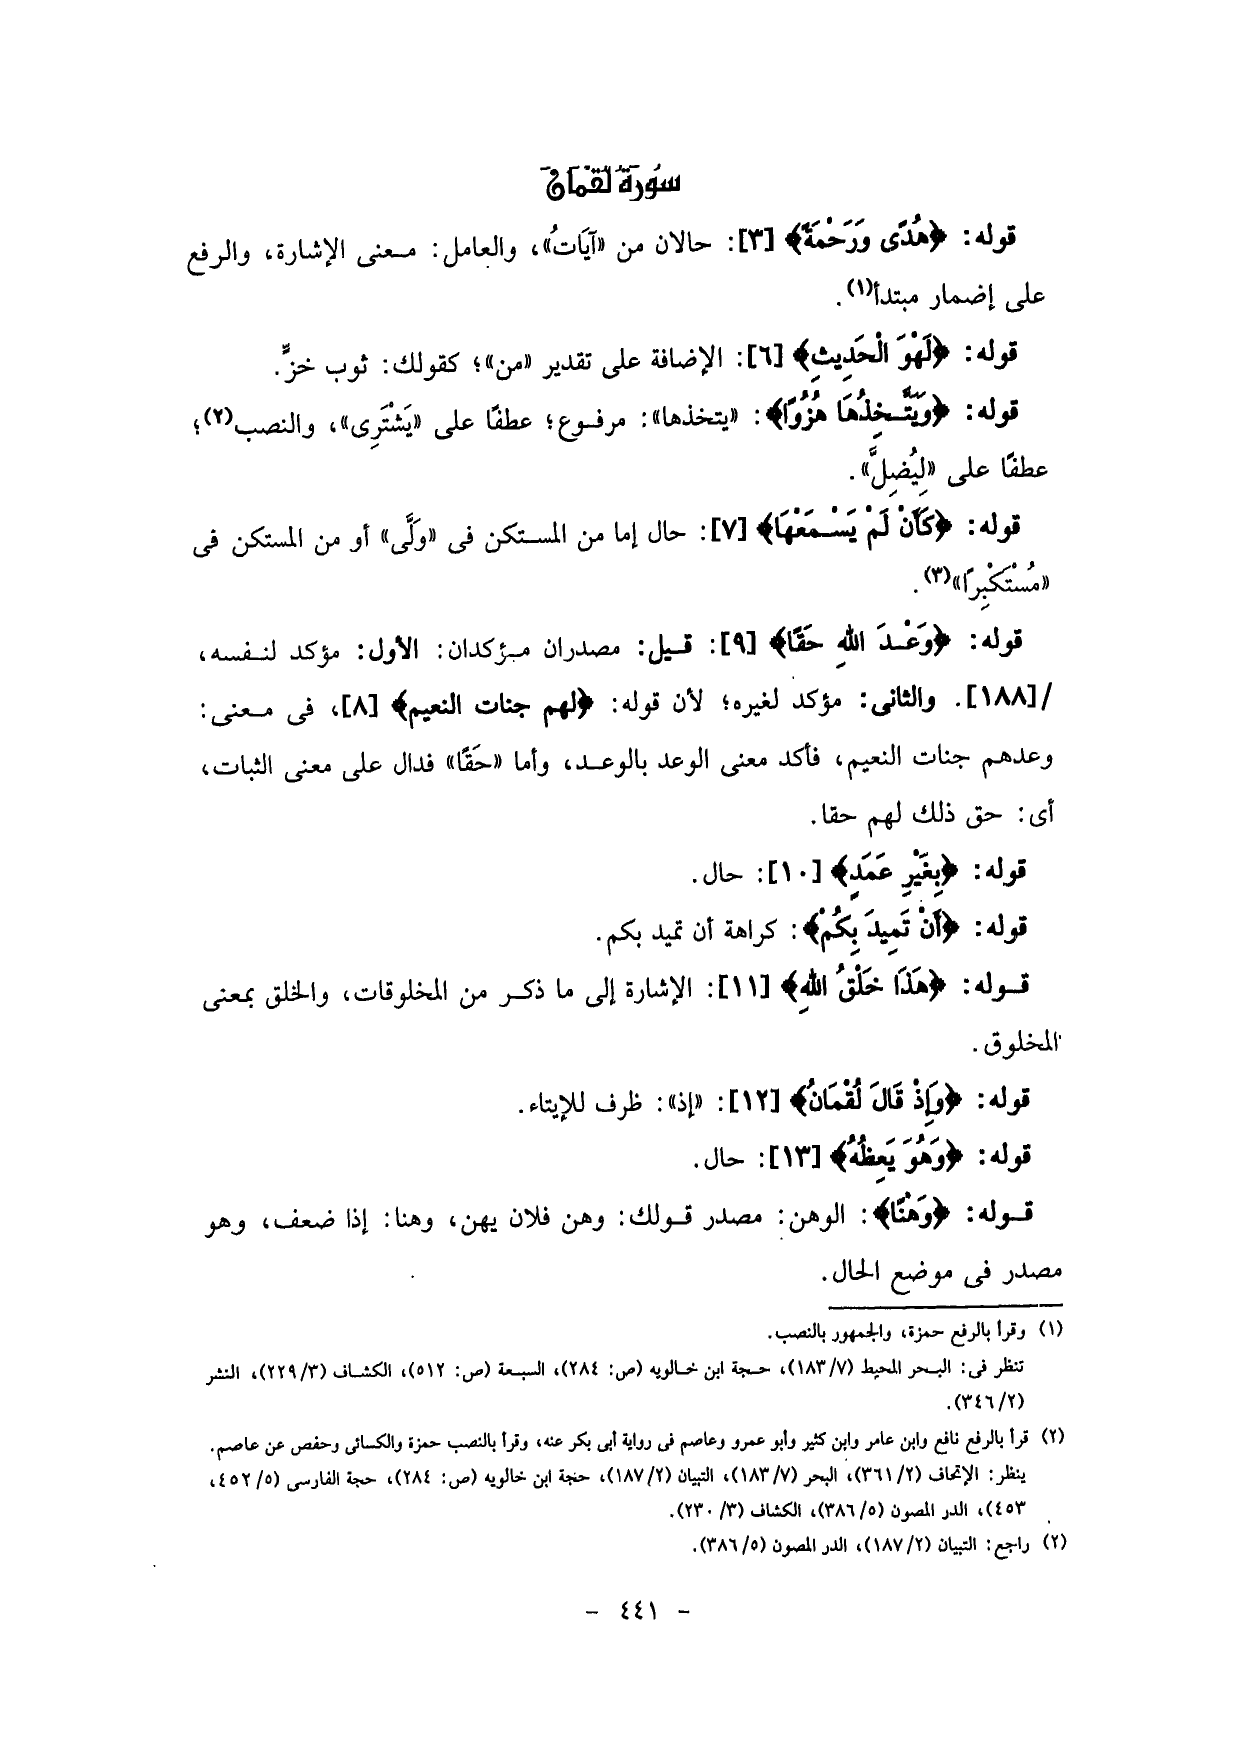 سُورَة لُقْمَان
قوله: ﴿هُدًى وَرَحْمَةً﴾ [٣]: حالان من «آيَاتُ»، والعامل: معنى الإشارة، والرفع
على إضمار مبتدأ(١).
قوله: ﴿لَهْوَ الْحَدِيثِ﴾ [٦]: الإضافة على تقدير «من»؛ كقولك: ثوب خزٍّ.
قوله: ﴿وَيَتَّخِذُهَا هُزُوًا﴾: «يتخذها»: مرفوع؛ عطفًا على «يَشْتَرِى»، والنصب(٢)؛
عطفًا على «لِيُضِلَّ».
قوله: ﴿كَأَنْ لَمْ يَسْمَعْهَا﴾ [٧]: حال إما من المستكن فى «وَلَّى» أو من المستكن فى
«مُسْتَكْبِرًا»(٣).
قوله: ﴿وَعْدَ اللهِ حَقًّا﴾ [٩]: قيل: مصدران مؤكدان: الأول: مؤكد لنفسه،
/[١٨٨]. والثانى: مؤكد لغيره؛ لأن قوله: ﴿لهم جنات النعيم﴾ [٨]، فى معنى:
وعدهم جنات النعيم، فأكد معنى الوعد بالوعد، وأما «حَقًّا» فدال على معنى الثبات،
أى: حق ذلك لهم حقا.
قوله: ﴿بِغَيْرِ عَمَدٍ﴾ [١٠]: حال.
قوله: ﴿أَنْ تَمِيدَ بِكُمْ﴾: كراهة أن تميد بكم.
قوله: ﴿هَذَا خَلْقُ اللهِ﴾ [١١]: الإشارة إلى ما ذكر من المخلوقات، والخلق بمعنى
المخلوق.
قوله: ﴿وَإِذْ قَالَ لُقْمَانُ﴾ [١٢]: «إذ»: ظرف للإيتاء.
قوله: ﴿وَهُوَ يَعِظُهُ﴾ [١٣]: حال.
قوله: ﴿وَهْنًا﴾: الوهن: مصدر قولك: وهن فلان يهن، وهنا: إذا ضعف، وهو
مصدر فى موضع الحال.
(١) وقرأ بالرفع حمزة، والجمهور بالنصب.
تنظر فى: البحر المحيط (١٨٣/٧)، حجة ابن خالويه (ص: ٢٨٤)، السبعة (ص: ٥١٢)، الكشاف (٢٢٩/٣)، النشر
(٣٤٦/٢).
(٢) قرأ بالرفع نافع وابن عامر وابن كثير وأبو عمرو وعاصم فى رواية أبى بكر عنه، وقرأ بالنصب حمزة والكسائى وحفص عن عاصم.
ينظر: الإتحاف (٣٦١/٢)، البحر (١٨٣/٧)، التبيان (١٨٧/٢)، حجة ابن خالويه (ص: ٢٨٤)، حجة الفارسى (٤٥٢/٥،
٤٥٣)، الدر المصون (٣٨٦/٥)، الكشاف (٢٣٠/٣).
(٢) راجع: التبيان (١٨٧/٢)، الدر المصون (٣٨٦/٥).
- ٤٤١ -